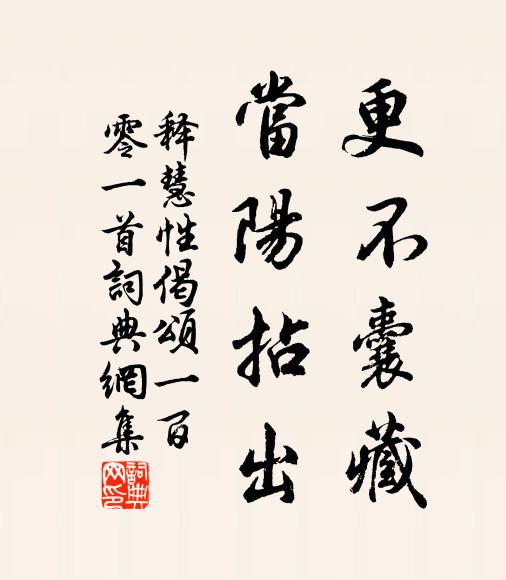 更不囊藏
當陽拈出
释慧性偈頌一百
零一首詞典網集
詞典網印